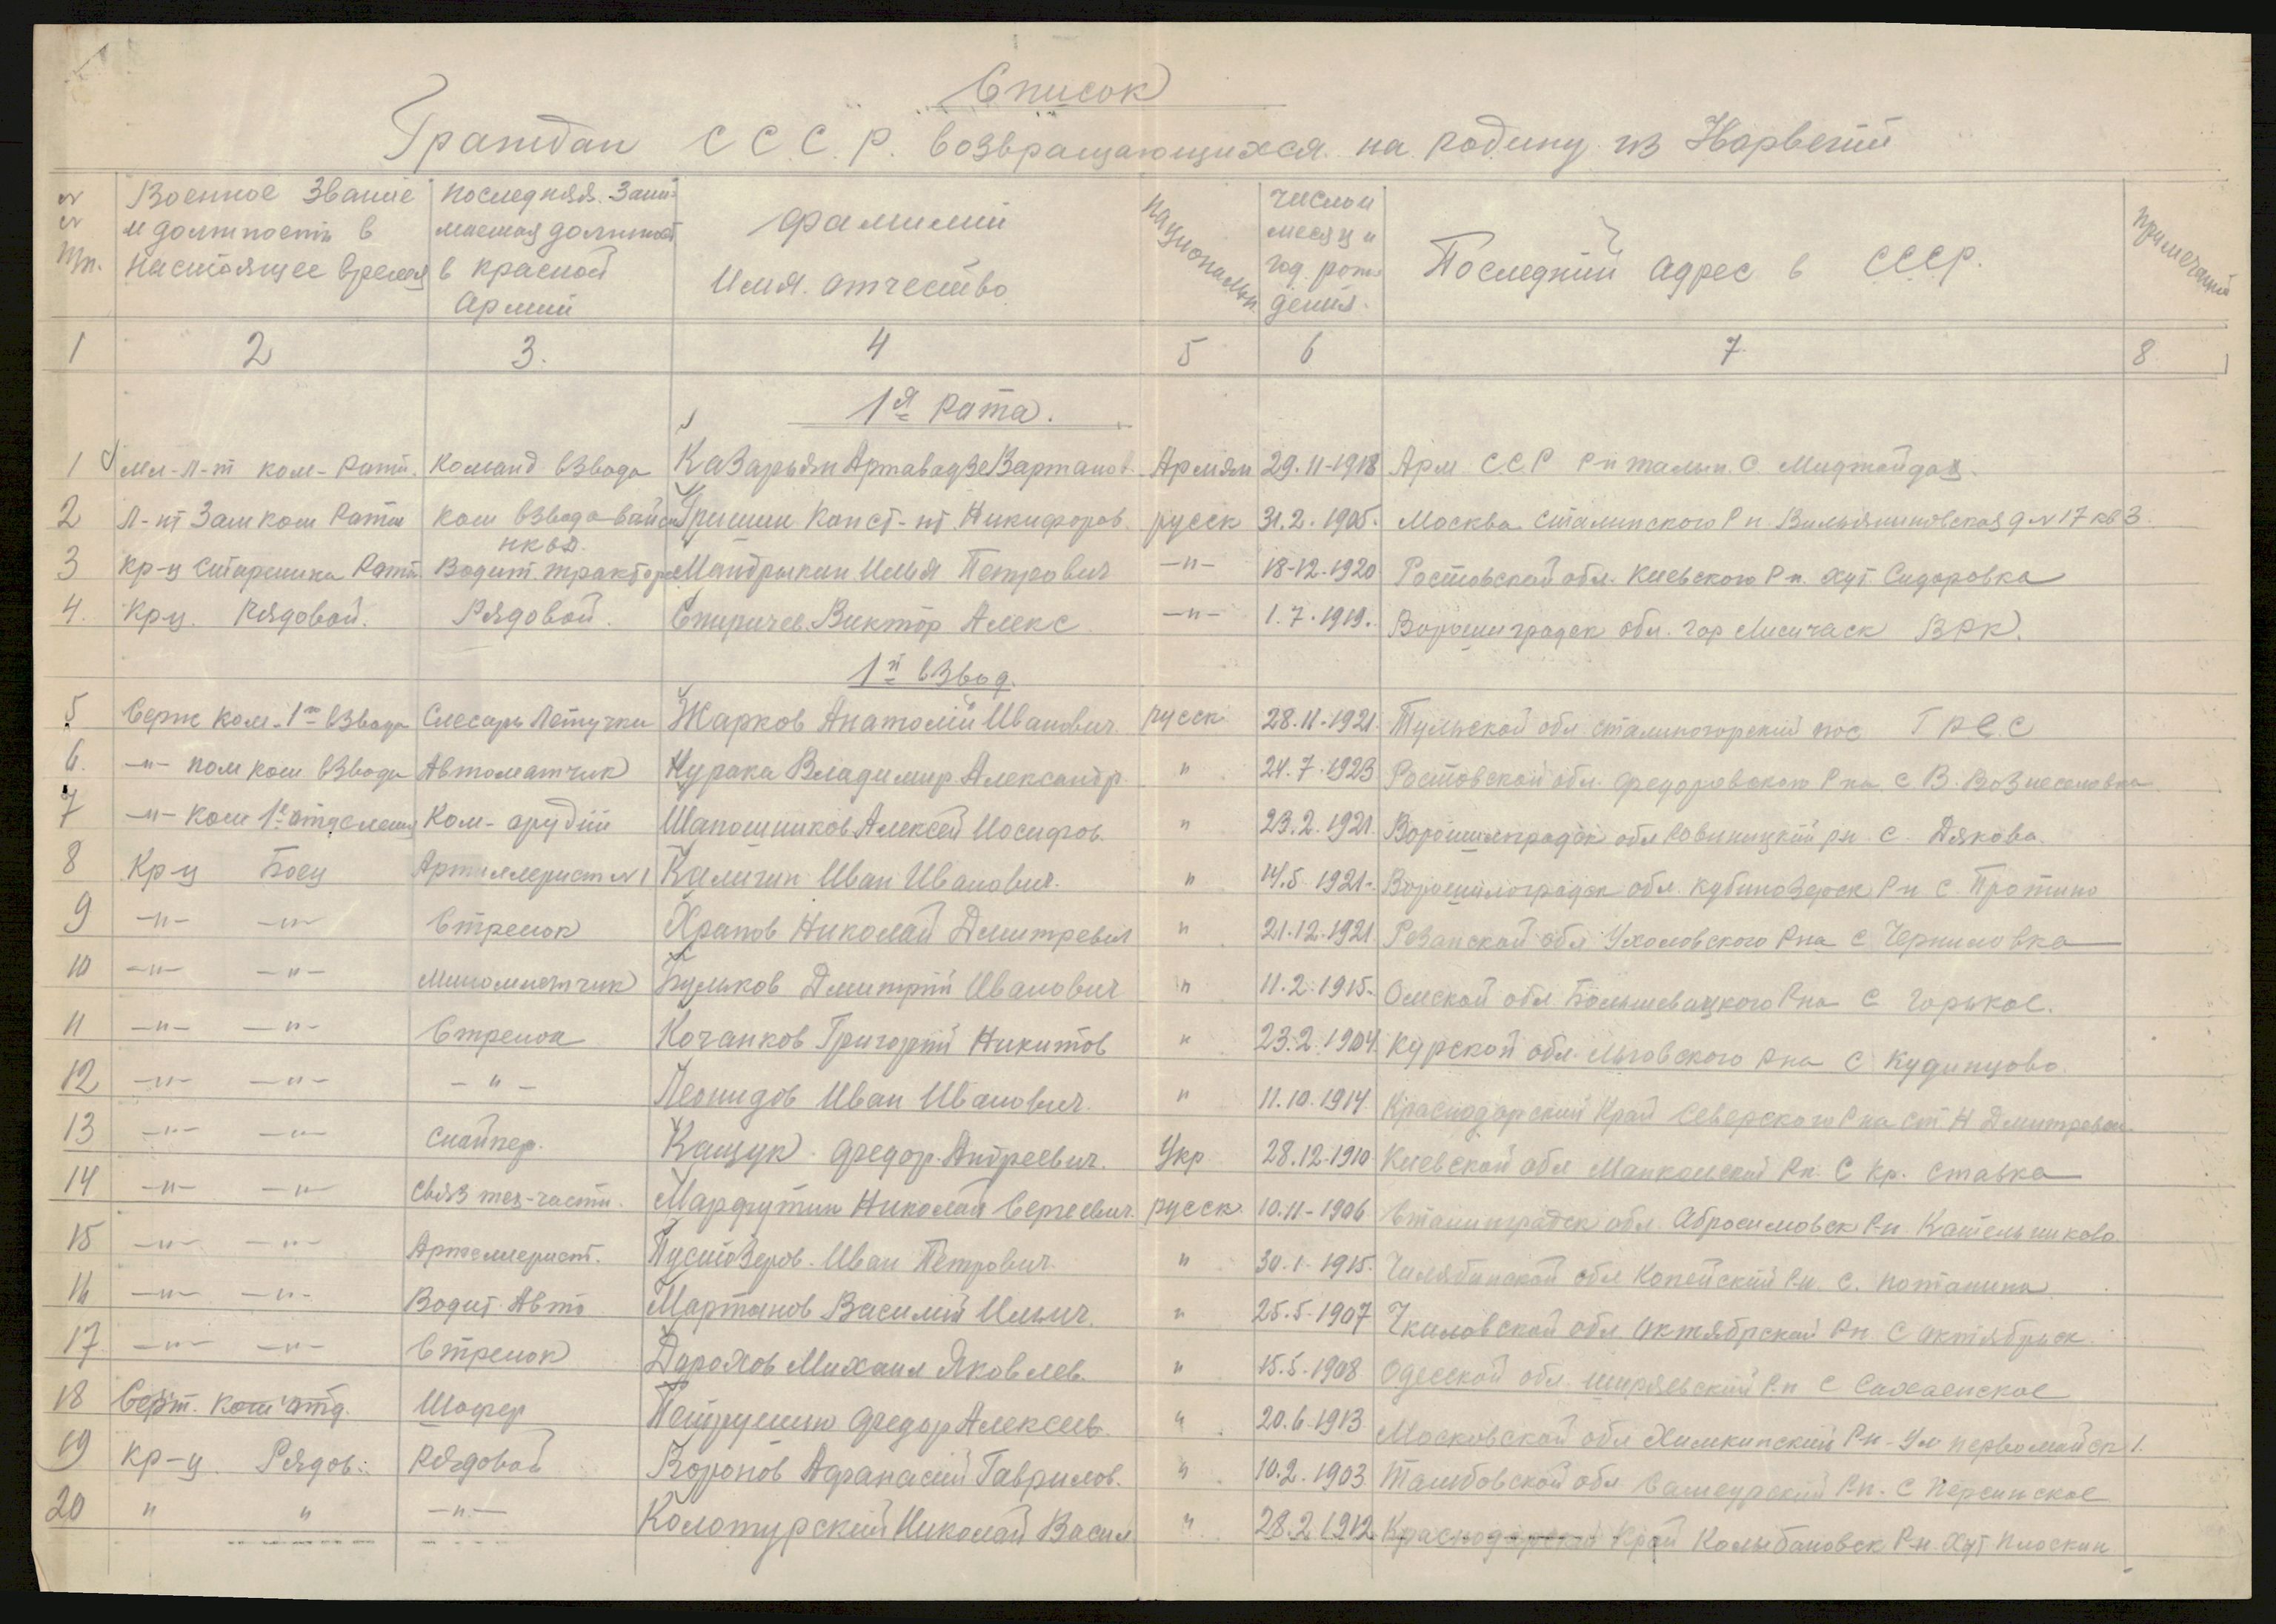 Список
Граждан С.С.С.Р. возвращающихся на родину из Норвегии
№ № пп. Военное звание и должность в настоящее время последняя занимаемая должност в красной Армии фамилий Имя. отчество национальн. число и месяц и год рождения. Последний адрес в СССР. примечаний
1 2 3. 4 5 6 7 8
1я Рота.
1 мл-л-т ком-Роты. Команд взвода Казарьян Артавадзе Вартанов. Армян 29.11-1918 Арм. С.С.Р. р-н талын. с.
2 л-нт Зам ком Роты ком взвода войск нквд. Гришин Конст-нт Никифоров. русск 31.2.1905. Москва Сталинского Р-н. д N 17 кв 3.
3 кр-ц Старшина Роты Водит трактора Мандрыкин Илья Петрович -"- 18-12-1920 Ростовской обл. Киевского Р-н. хут. Сидоровка
4. Кр-ц. Рядовой. Рядовой. Спиричев Виктор Алекс -"- 1.7.1919. Ворошиградск обл. гор Лисичаск ВРК.
1й взвод.
5 Серж ком-1го взвода Слесарь Летучки Жарков Анатолий Иванович. русск. 28.11-1921. Тульской обл. сталиногорский пос ГРЕС
6. -"- пом ком взвода Автоматчик Курака Владимир Александр. " 24.7.1923 Ростовской обл. Федоровского Р-на с. В. Вознесеновка
7 -"- Ком 1го отделения Ком-орудий Шапошников Алексей Иосифов. " 23.2.1921. Ворошилградск обл Ровиницкий рн. с. Дякова.
8 Кр-ц Боец Артиллерист N 1 Калигин Иван Иванович. " 14.5.1921. Ворошилоградск обл. Р-н с.
9 -"- -"- Стрелок Храпов Николай Дмитревич " 21.12.1921 Резанской обл Ухоловского Р-на с Черниловка
10 -"- -"- минометчик Бульков Дмитрий Иванович " 11.2.1915. Омской обл. Р-на с Горькое.
11 -"- -"- Стрелок Кочанков Григорий Никитов " 23.2.1904. Курской обл. Льговского Р-на с Кудинцово.
12 -"- -"- -"- Леонидов Иван Иванович. " 11.10.1914 Краснодарский Край Северского Р-на ст. Н Дмитревск.
13 -"- -"- Снайпер. Кащук. Федор. Андреевич. Укр 28.12.1910 Киевской обл Р-н. с Кр. ставка
14 -"- -"- Связ тех-части. Марфутин Николай Сергеевич. русск 10.11-1906 Сталинградск обл. Абросимовск Р-н Кательниково.
15 -"- -"- Артеллерист. Пустозеров. Иван Петрович. " 30.1.1915. Чилябинской обл Копейский Р-н. с. потанина
16 -"- -"- Водит. Авто Мартынов Василий Ильич. " 25.5.1907 Чкаловской обл. Октябрской Р-н. с октябрьск.
17 -"- -"- Стрелок Дорохов Михаил Яковлев. " 15.5.1908 Одесской обл. ширяевский Р-н с Сахаенское
18 Серж. Ком отд. Шофер Петрушин Федор Алексеев. " 20.6.1913 Московской обл Химкинский Р-н-ул первомайск 1.
19 кр-ц Рядов. Рядовой Воронов Афанасий Гаврилов. " 10.2.1903 Тамбовской обл. Р-н. с
20 " " -"- Коломурский Николай Васил " 28.2.1912 Краснодарский Край Колыбановск Р-н. Хут плоскин